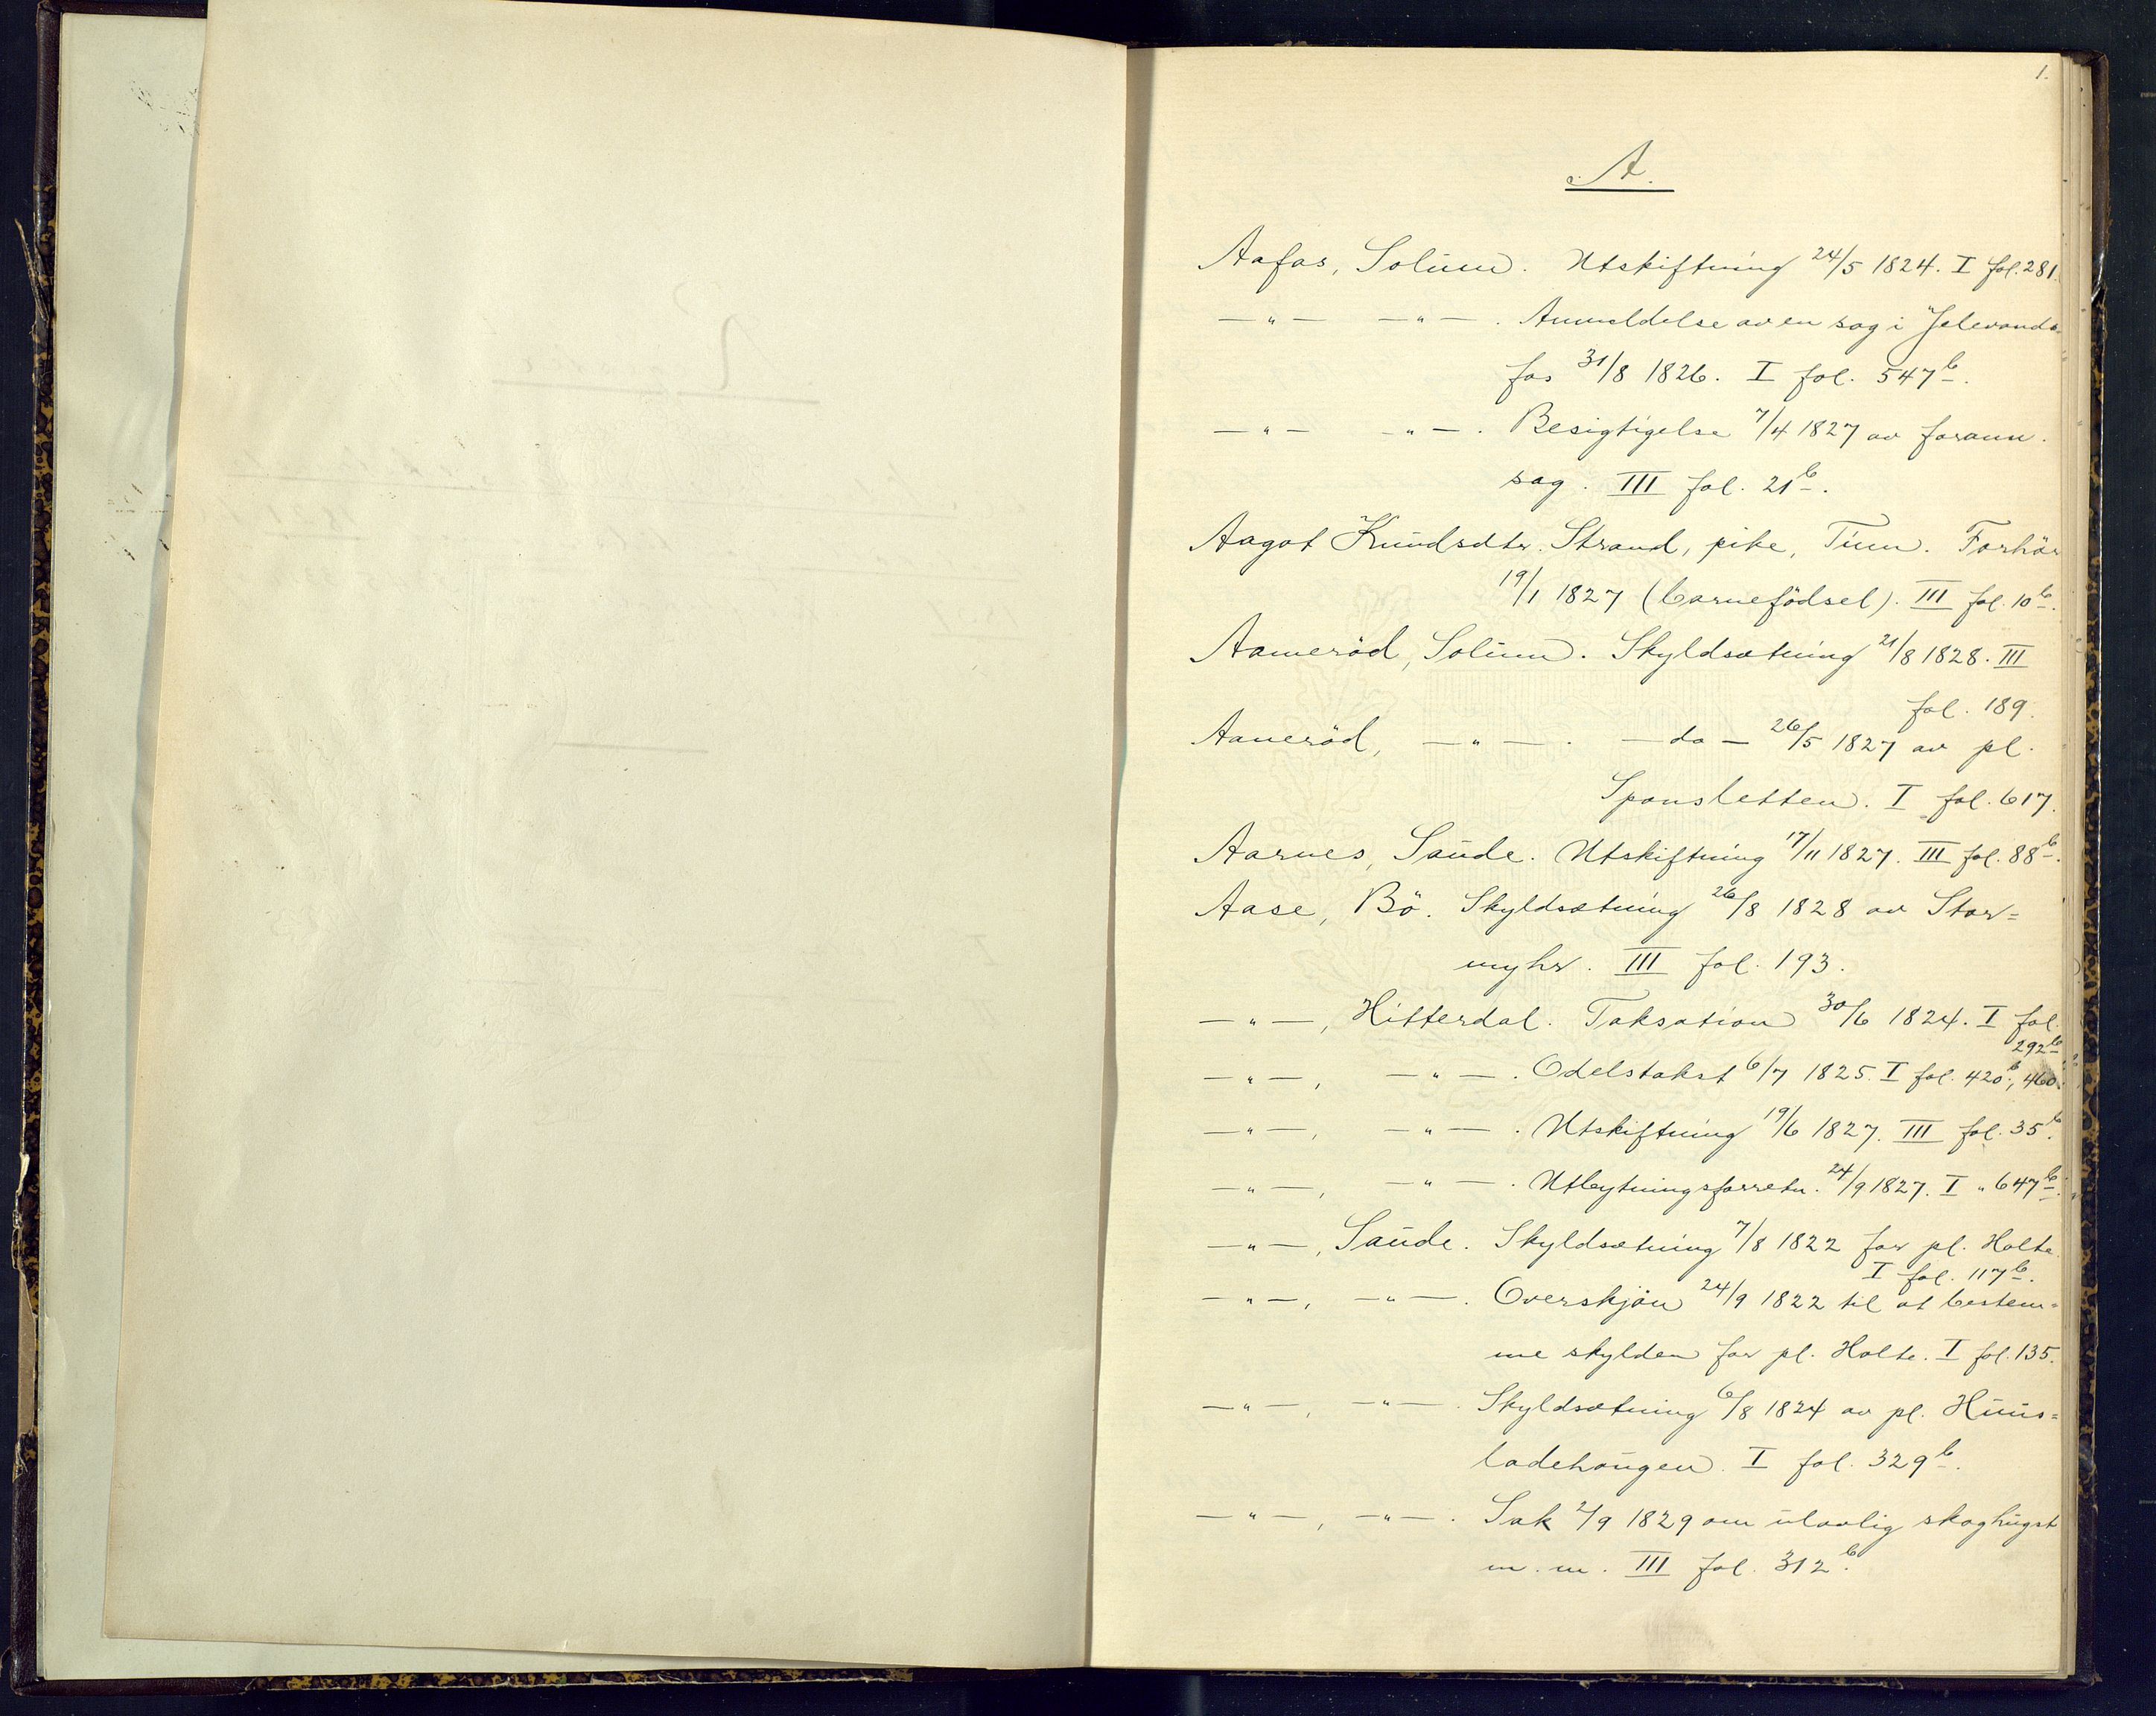 1.
A.
Aafos, Solum. Utskiftning 24/5 1824. I fol. 281.
—"— —"—. Anmeldelse av en sag i Jelevands-
fos 31/8 1826. I fol. 547b.
—"— —"—. Besigtigelse 7/4 1827 av forann.
sag. III fol. 21b.
Aagot Knudsdtr. Strand, pike, Tinn. Forhör
19/1 1827 (barnefödsel). III fol. 10b.
Aameröd, Solum. Skyldsætning 21/8 1828. III
fol. 189.
Aaneröd, —"—. —do— 26/5 1827 av pl.
Sponsletten. I fol. 617.
Aarnes, Saude. Utskiftning 17/11 1827. III fol. 88b.
Aase, Bö. Skyldsætning 26/8 1828 av Stor=
myhr. III fol. 193.
—"—, Hitterdal. Taksation 30/6 1824. I fol.
292b
—"—, —"—. Odelstakst 6/7 1825. I fol. 420b, 460.
—"—, —"—. Utskiftning 19/6 1827. III fol. 35b.
—"—, —"—. Utbytningsforretn. 24/9 1827. I " 647b.
—"—, Saude. Skyldsætning 7/8 1822 for pl. Holte.
I fol. 117b.
—"—, —"—. Overskjön 24/9 1822 til at bestem=
me skylden for pl. Holte. I fol. 135.
—"—, —"—. Skyldsætning 6/8 1824 av pl. Huus=
ladehougen. I fol. 329b.
—"—, —"—. Sak 2/9 1829 om ulovlig skoghugst
m. m. III fol. 312b.